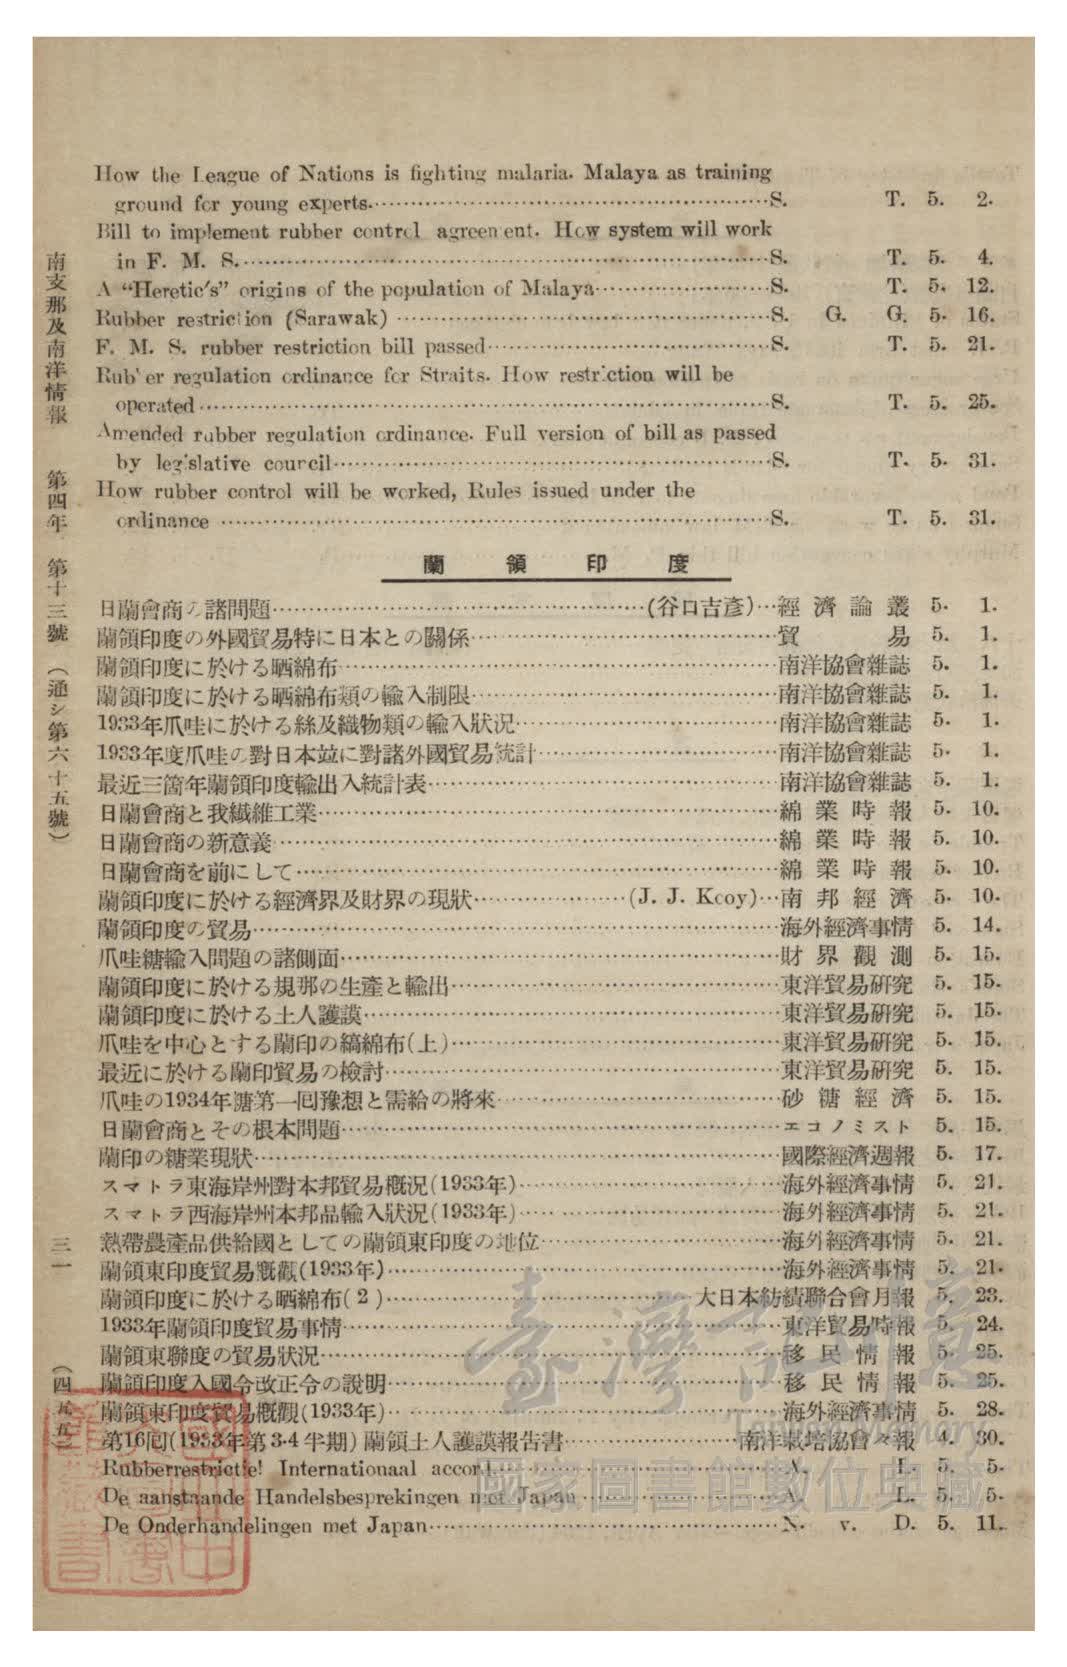 How the League of Nations is fighting malaria. Malaya as training
ground for young experts.……S. T. 5. 2.
Bill to implement rubber control agreement. How system will work
in F. M. S.……S. T. 5. 4.
A “Heretic's” origins of the population of Malaya……S. T. 5. 12.
Rubber restriction (Sarawak) ……S. G. G. 5. 16.
F. M. S. rubber restriction bill passed……S. T. 5. 21.
Rubber regulation ordinance for Straits. How restriction will be
operated……S. T. 5. 25.
Amended rubber regulation ordinance. Full version of bill as passed
by legislative council……S. T. 5. 31.
How rubber control will be worked, Rules issued under the
ordinance ……S. T. 5. 31.
蘭領印度
日蘭會商の諸問題……(谷口吉彥)…經濟論叢 5. 1.
蘭領印度の外國貿易特に日本との關係……貿易 5. 1.
蘭領印度に於ける晒綿布……南洋協會雜誌 5. 1.
蘭領印度に於ける晒綿布類の輸入制限……南洋協會雜誌 5. 1.
1933年爪哇に於ける絲及織物類の輸入狀況……南洋協會雜誌 5. 1.
1933年度爪哇の對日本竝に對諸外國貿易統計……南洋協會雜誌 5. 1.
最近三箇年蘭領印度輸出入統計表……南洋協會雜誌 5. 1.
日蘭會商と我纎維工業……綿業時報 5. 10.
日蘭會商の新意義……綿業時報 5. 10.
日蘭會商を前にして……綿業時報 5. 10.
蘭領印度に於ける經濟界及財界の現狀……(J. J. Kooy)…南邦經濟 5. 10.
蘭領印度の貿易……海外經濟事情 5. 14.
爪哇糖輸入問題の諸側面……財界觀測 5. 15.
蘭領印度に於ける規那の生產と輸出……東洋貿易硏究 5. 15.
蘭領印度に於ける土人護謨……東洋貿易硏究 5. 15.
爪哇を中心とする蘭印の縞綿布(上)……東洋貿易硏究 5. 15.
最近に於ける蘭印貿易の檢討……東洋貿易硏究 5. 15.
爪哇の1934年糖第一回豫想と需給の將來……砂糖經濟 5. 15.
日蘭會商とその根本問題……エコノミスト 5. 15.
蘭印の糖業現狀……國際經濟週報 5. 17.
スマトラ東海岸州對本邦貿易槪況(1933年)……海外經濟事情 5. 21.
スマトラ西海岸州本邦品輸入狀況(1933年)……海外經濟事情 5. 21.
熱帶農產品供給國としての蘭領東印度の地位……海外經濟事情 5. 21.
蘭領東印度貿易槪觀(1933年)……海外經濟事情 5. 21.
蘭領印度に於ける晒綿布(2)……大日本紡績聯合會月報 5. 23.
1933年蘭領印度貿易事情……東洋貿易時報 5. 24.
蘭領東聯度の貿易狀況……移民情報 5. 25.
蘭領印度入國令改正令の說明……移民情報 5. 25.
蘭領東印度貿易槪觀(1933年)……海外經濟事情 5. 28.
第16回(1933年第3-4半期)蘭領土人護謨報告書……南洋栽培協會々報 4. 30.
Rubberrestrictie! Internationaal accord.……A. I. 5. 5.
De aanstaande Handelsbesprekingen met Japan……A. I. 5. 5.
De Onderhandelingen met Japan……N. v. D. 5. 11.
南支那及南洋情報 第四年 第十三號 (通シ第六十五號)
三一
(四五五)
臺灣記憶
Taiwan Memory
國家圖書館數位典藏